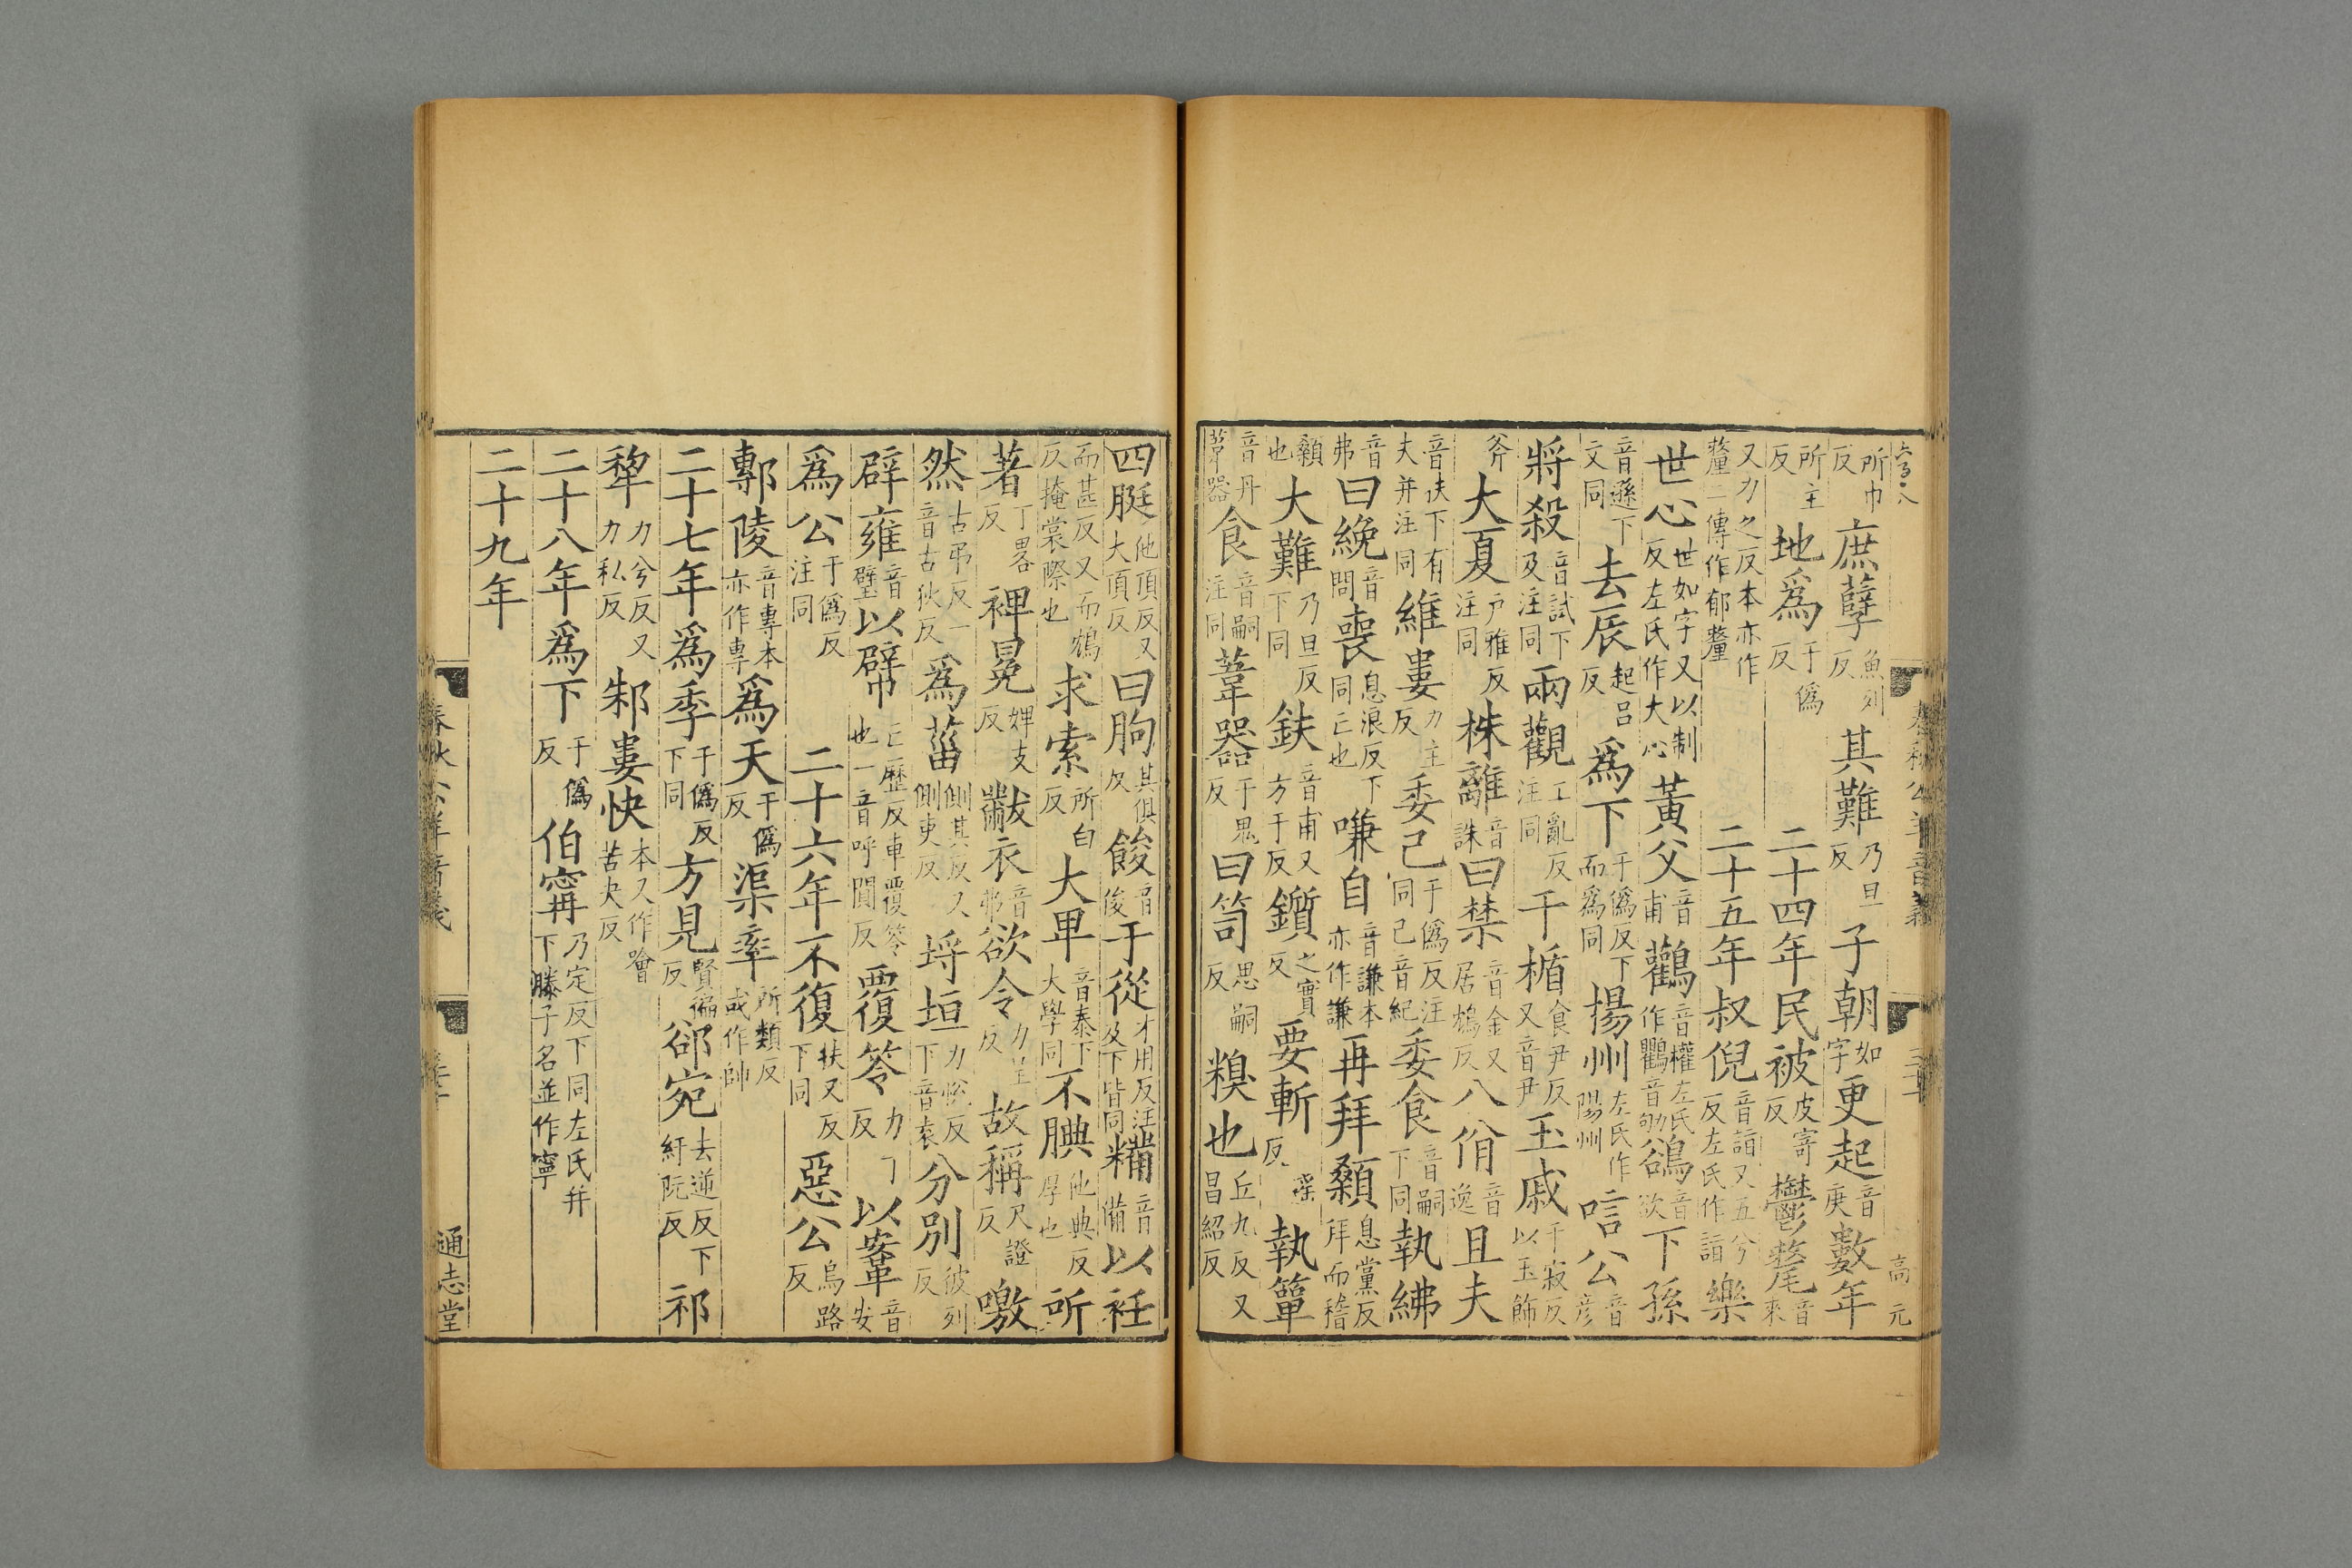 所巾反庶孽魚列反其難乃旦反子朝如字更起音庚數年
所主反地爲于僞反二十四年民被皮寄反鬱釐音來
又力之反本亦作釐二傳作郁釐二十五年叔倪音詣又五兮反左氏作詣樂
世心世如字又以制反左氏作大心黃父音甫鸛音權左氏作鸜音劬鵒音欲下孫
音遜下文同去辰起呂反爲下于僞反下而爲同揚州左氏作陽州唁公音彥
將殺音試下及注同兩觀工亂反注同干楯食尹反又音尹玉戚千寂反以玉飾
斧大夏戶雅反注同株離音誅曰禁音金又居鴆反八佾音逸且夫
音扶下有夫并注同維婁力主反委己于僞反注同己音紀委食音嗣下同執紼
音弗曰絻音問喪息浪反下同亡也嗛自音謙本亦作謙再拜顙息黨反拜而稽
顙也大難乃旦反下同鈇音甫又方于反鑕之實反要斬一遥反執簞
音丹葦器食音嗣注同葦器于鬼反曰笥思嗣反糗也丘九反又昌紹反
四脡他頂反又大頂反曰朐其俱反餕音俊于從才用反注及下皆同糒音備以衽
而甚反又而鴆反掩裳際也求索所白反大卑音泰下大學同不腆他典反厚也所
著丁畧反裨冕婢支反黻衣音弗欲令力呈反故稱尺證反噭
然古弔反一音古狄反爲菑側其反又側吏反埒垣力悅反下音袁分別彼列反
辟雍音璧以幦亡歷反車覆笭也一音呼閴反覆笭力丁反以䅁音安
爲公于僞反注同二十六年不復扶又反下同惡公烏路反
鄟陵音專本亦作專爲天于僞反渠率所類反或作帥
二十七年爲季于僞反下同方見賢徧反郤宛去逆反下紆阮反祁
犂力兮反又力私反邾婁快本又作噲苦夬反
二十八年爲下于僞反伯甯乃定反下同左氏并下滕子名並作寧
二十九年
春秋公羊音義
通志堂
高元